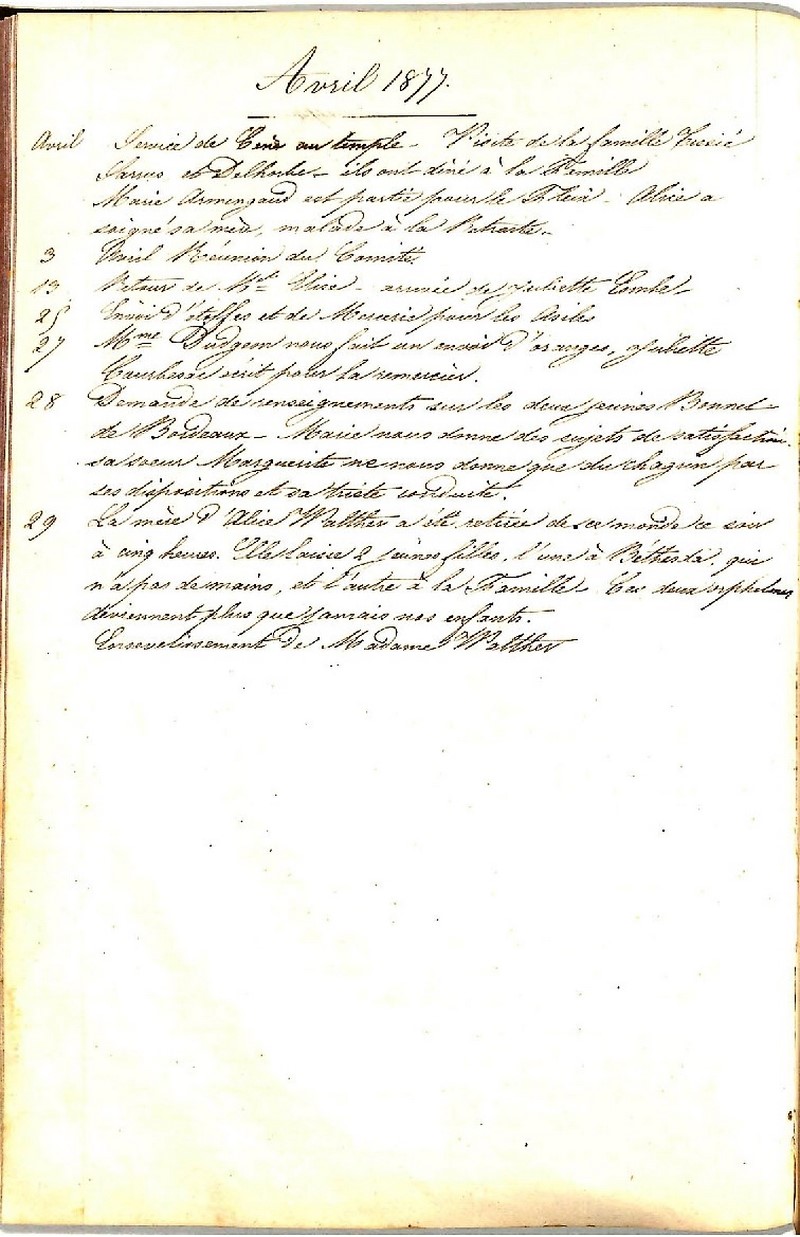 Avril 1877.
Avril Service de Cène au temple - Visite de la famille
Sarrus et Delhorbe - ils ont dîné à la Famille
Marie Armengaud est partie pour le Fleix - Alice a
soigné sa mère, malade à la Retraite -
3 Avril Réunion du Comité.
13 Retour de Mlle Elise - arrivée de Juliette
25 Envoi d'étoffes et de Mercerie pour les Asiles
27 Mme Dudgeon nous fait un envoi d'oranges, Juliette
écrit pour la remercier.
28 Demande de renseignements sur les deux jeunes Bonnet
de Bordeaux - Marie nous donne des sujets de satisfaction.
sa soeur Marguerite ne nous donne que du chagrin par
ses dispositions et sa triste conduite.
29 La mère d'Alice Walther a été retirée de ce monde ce soir
à cinq heures. Elle laisse 2 jeunes filles, l'une à Béthesda, qui
n'a pas de mains, et l'autre à la Famille - Ces deux orphelines
deviennent plus que jamais nos enfants.
Ensevelissement de Madame Walther